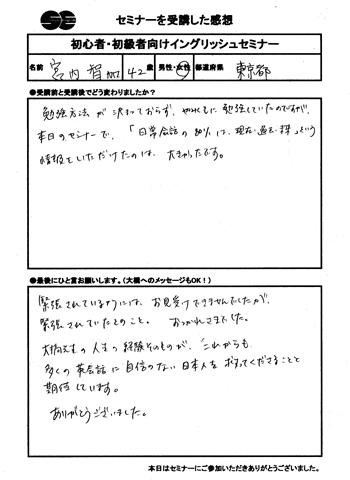 セミナーを受講した感想
初心者・初級者向けイングリッシュセミナー
名前 宮内 智加 42歳 男性・女性 都道府県 東京都
●受講前と受講後でどう変わりましたか？
勉強方法が決まっておらず、やみくもに勉強していたのですが、
本日のセミナーで、「日常会話の80%は、現在・過去・未来」という
情報をいただけたのは、大きかったです。
●最後にひと言お願いします。(大橋へのメッセージもOK！)
緊張されているようには、お見受けできませんでしたが、
緊張されていたとのこと。おつかれさまでした。
大橋先生の人生の経験そのものが、これからも
多くの英会話に自信のない日本人を
期待しています。
ありがとうございました。
本日はセミナーにご参加いただきありがとうございました。